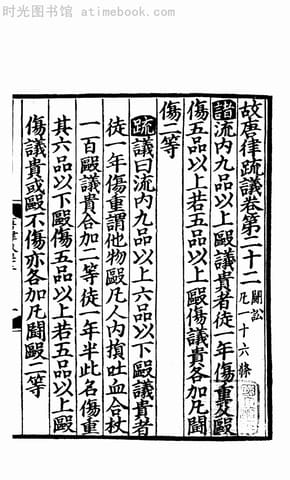 时光图书馆 atimebook.com
故唐律疏議卷第二十二 鬭訟 凡一十六條
諸流内九品以上毆議貴者徒一年傷重及毆
傷五品以上若五品以上毆傷議貴各加凡鬭
傷二等
疏議曰流内九品以上六品以下毆議貴者
徒一年傷重謂他物毆凡人内損吐血合杖
一百毆議貴合加二等徒一年半此名傷重
其六品以下毆傷五品以上若五品以上毆
傷議貴或毆不傷亦各加凡鬭毆二等